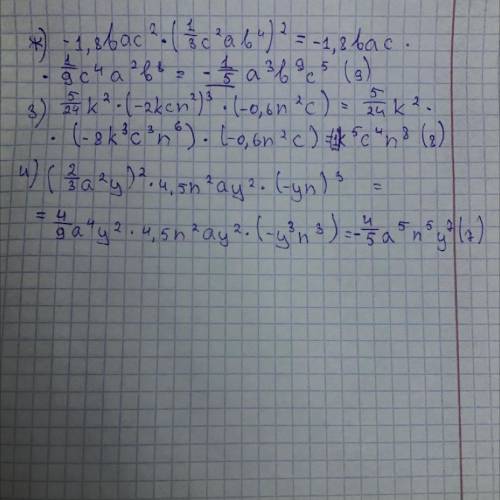 ж) -1,8bac² · (1/3 c²ab⁴)² = -1,8bac ·
· 1/9 c⁴a²b⁸ = -1/5 a³b⁹c⁵ (9)
з) 5/24 k² · (-2kcn²)³ · (-0,6n²c) = 5/24 k² ·
· (-8k³c³n⁶) · (-0,6n²c) = 1k⁵c⁴n⁸ (8)
и) (2/3 a²y)² · 4,5n²ay² · (-yn)³ =
= 4/9 a⁴y² · 4,5n²ay² · (-y³n³) = -4/5 a⁵n⁵y⁷ (7)